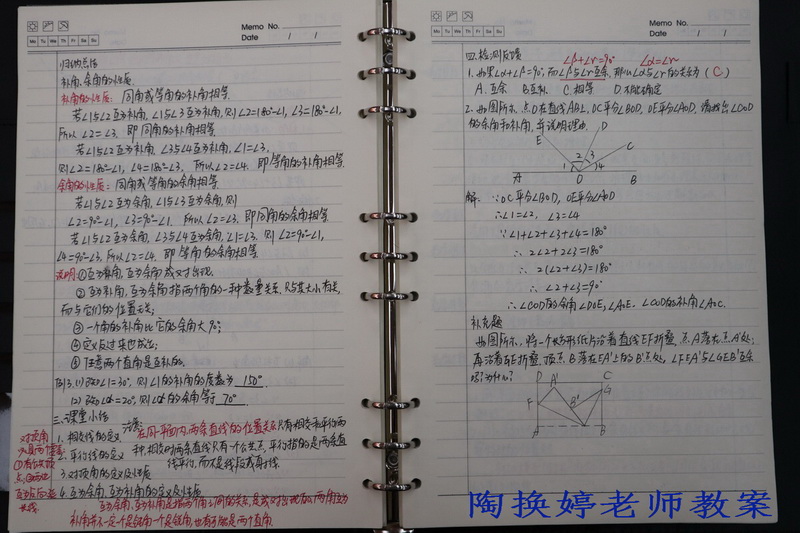 Memo No.
Mo Tu We Th Fr Sa Su
Date / /
归纳总结
补角、余角的性质.
补角的性质: 同角或等角的补角相等.
若∠1与∠2互为补角, ∠1与∠3互为补角, 则∠2=180°-∠1, ∠3=180°-∠1,
所以∠2=∠3. 即同角的补角相等
若∠1与∠2互为补角, ∠3与∠4互为补角, ∠1=∠3.
则∠2=180°-∠1, ∠4=180°-∠3, 所以∠2=∠4. 即等角的补角相等.
余角的性质: 同角或等角的余角相等.
若∠1与∠2互为余角, ∠1与∠3互为余角, 则
∠2=90°-∠1, ∠3=90°-∠1. 所以∠2=∠3. 即同角的余角相等
若∠1与∠2互为余角, ∠3与∠4互为余角, ∠1=∠3. 则∠2=90°-∠1,
∠4=90°-∠3, 所以∠2=∠4. 即等角的余角相等
说明: ①互为补角, 互为余角成对出现.
②互为补角, 互为余角指两个角的一种数量关系. 只与其大小有关,
而与它们的位置无关;
③一个角的补角比它的余角大90°;
④定义反过来也成立;
⑤任意两个直角是互补的.
例3. (1) 已知∠1=30°, 则∠1的补角的度数为 150°
(2) 已知∠α=20°, 则∠α的余角等于 70°
三. 课堂小结
1. 相交线的定义 注意: 在同一平面内, 两条直线的位置关系只有相交和平行两
2. 平行线的定义 种, 相交时两条直线只有一个公共点, 平行指的是两条直
线平行, 而不是线段或射线.
3. 对顶角的定义及性质
4. 互为余角, 互为补角的定义及性质
对顶角
Memo No.
Mo Tu We Th Fr Sa Su
Date / /
四. 检测反馈
∠β+∠γ=90° ∠α=∠γ
1. 如果∠α+∠β=90°, 而∠β与∠γ互余, 那么∠α与∠γ的关系为 (C)
A. 互余 B. 互补 C. 相等 D. 不能确定
2. 如图所示, 点O在直线AB上, OC平分∠BOD, OE平分∠AOD, 请找出∠COD
的余角和补角, 并说明理由.
E D C
1 2 3 4
A O B
解: ∵OC平分∠BOD, OE平分∠AOD
∴∠1=∠2, ∠3=∠4
∵∠1+∠2+∠3+∠4=180°
∴ 2∠2+2∠3=180°
∴ 2(∠2+∠3)=180°
∴ ∠2+∠3=90°
∴ ∠COD的余角∠DOE, ∠AOE. ∠COD的补角∠AOC.
补充题
如图所示, 将一个长方形纸片沿着直线EF折叠, 点A落在点A'处;
再沿着GE折叠, 顶点B落在EA'上的B'点处, ∠FEA'与∠GEB'互余
吗? 为什么?
D A' C
G
F B'
A E B
陶换婷老师教案